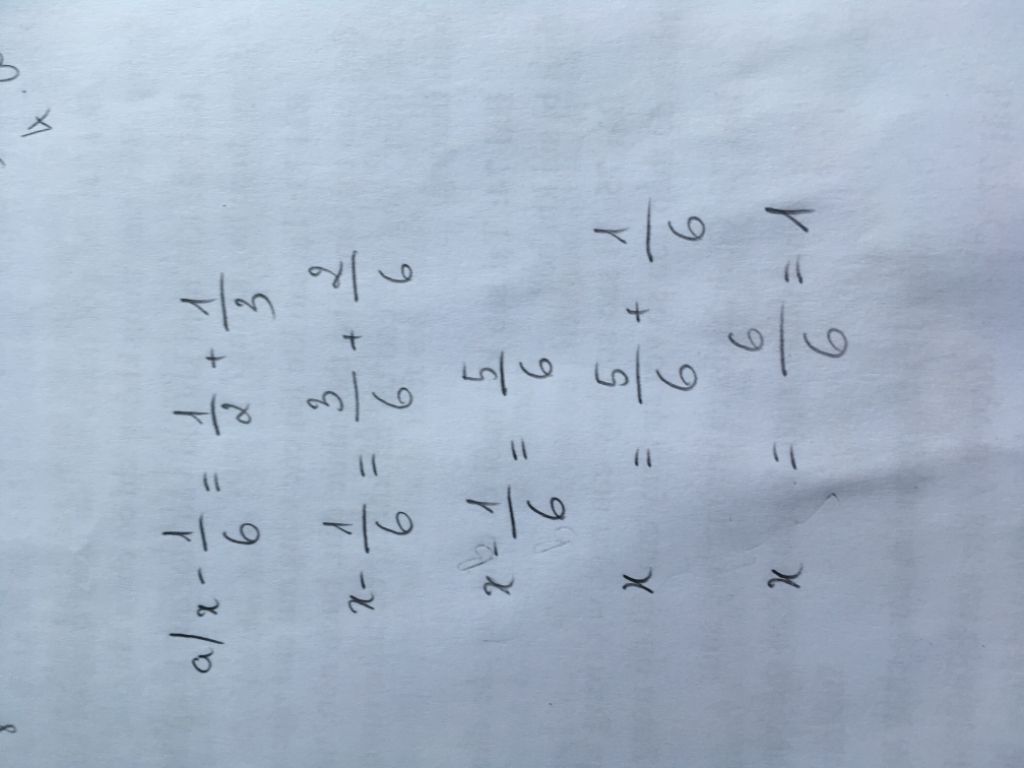 a/ x - 1/6 = 1/2 + 1/3
x - 1/6 = 3/6 + 2/6
x - 1/6 = 5/6
x = 5/6 + 1/6
x = 6/6 = 1